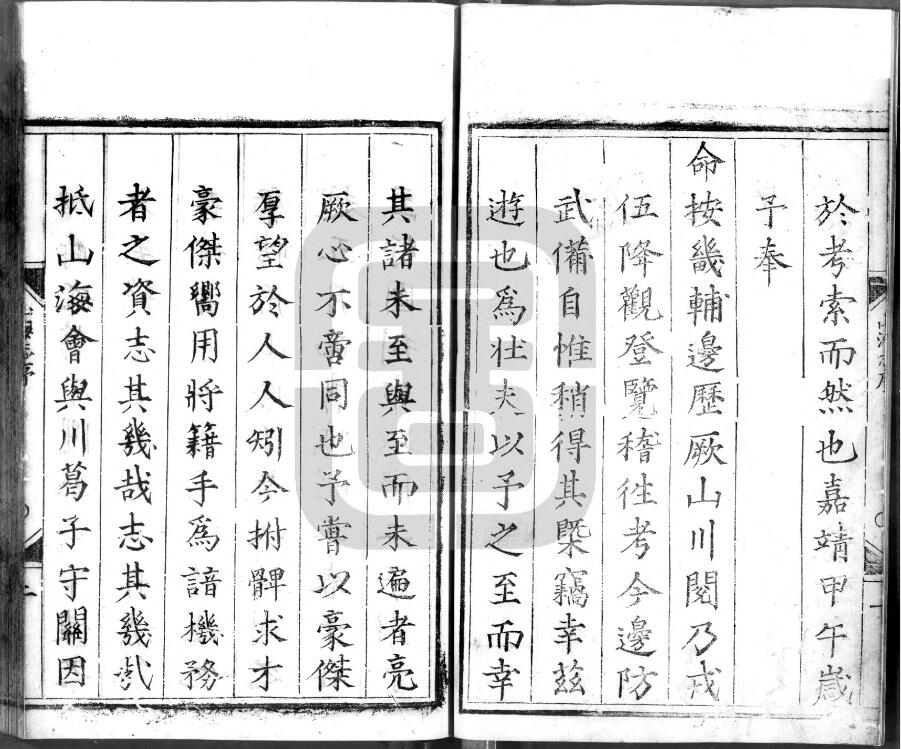 於考索而然也嘉靖甲午歲
予奉
命按畿輔邊歷厥山川閱乃戎
伍降觀登覽稽徃考今邊防
武備自惟稍得其槩竊幸兹
遊也爲壮夫以予之至而幸
其諸未至與至而未遍者亮
厥心不啻同也予嘗以豪傑
厚望於人人矧今拊髀求才
豪傑嚮用將籍手爲諳機務
者之資志其幾哉志其幾哉
抵山海會與川葛子守關因
海志序